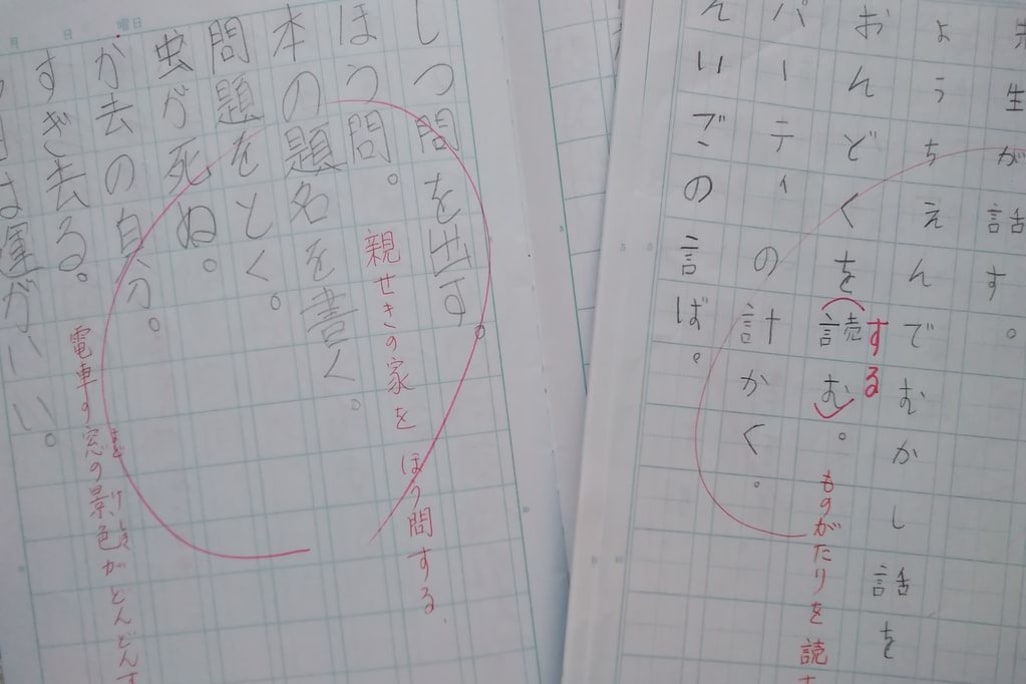 先生が話す。
ようちえんでむかし話を
おんどくを読む。
する
ものがたりを読
パーティの計かく。
えいごの言ば。
月 日 曜日
しつ問を出す。
ほう問。
親せきの家をほう問する
本の題名を書く。
問題をとく。
虫が死ぬ。
か去の自分。
すぎ去る。
電車の窓の景色がどんどんす
まど けしき
日は運がいい。